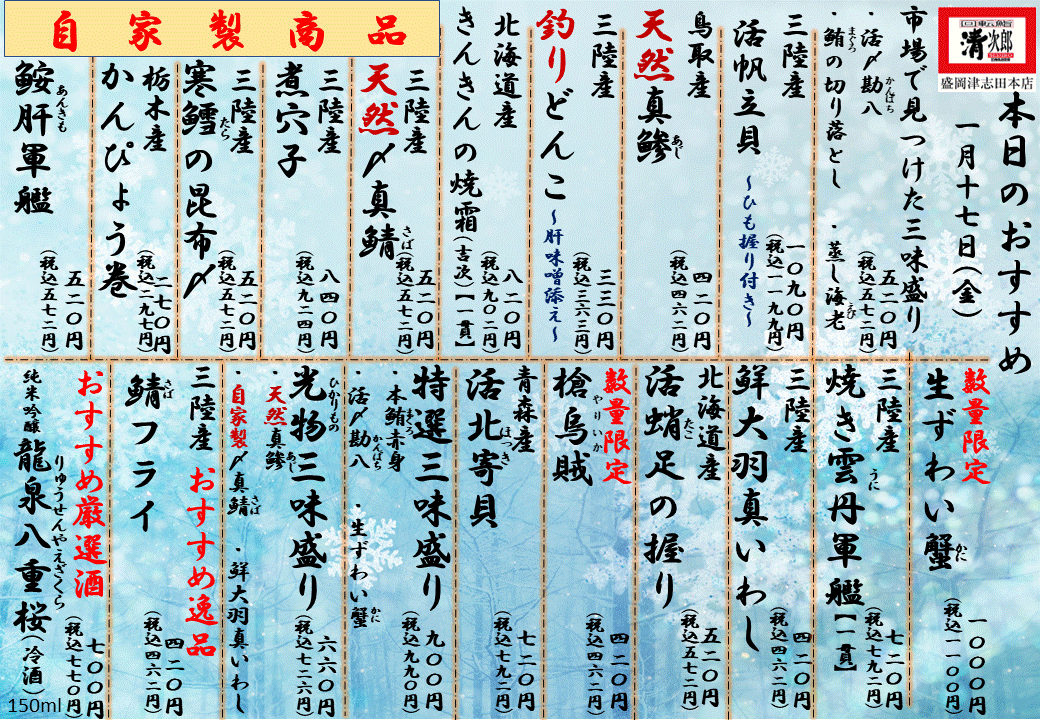 回転鮨
清次郎
盛岡津志田本店
本日のおすすめ
一月十七日(金)
市場で見つけた三味盛り
・活〆勘八
かんぱち
・鮪の切り落とし
まぐろ
・蒸し海老
えび
五二〇円
(税込五七二円)
三陸産
活帆立貝
～ひも握り付き～
一〇九〇円
(税込一一九九円)
鳥取産
天然真鯵
あじ
四二〇円
(税込四六二円)
三陸産
釣りどんこ
～肝味噌添え～
三三〇円
(税込三六三円)
北海道産
きんきんの焼霜(吉次)【一貫】
八二〇円
(税込九〇二円)
自家製商品
三陸産
天然〆真鯖
さば
五二〇円
(税込五七二円)
三陸産
煮穴子
八四〇円
(税込九二四円)
三陸産
寒鱈の昆布〆
たら
五二〇円
(税込五七二円)
栃木産
かんぴょう巻
二七〇円
(税込二九七円)
鮟肝軍艦
あんきも
五二〇円
(税込五七二円)
数量限定
生ずわい蟹
かに
一〇〇〇円
(税込一一〇〇円)
三陸産
焼き雲丹軍艦【一貫】
うに
七二〇円
(税込七九二円)
三陸産
鮮大羽真いわし
四二〇円
(税込四六二円)
北海道産
活蛸足の握り
たこ
五二〇円
(税込五七二円)
数量限定
槍烏賊
やりいか
四二〇円
(税込四六二円)
青森産
活北寄貝
ほっき
七二〇円
(税込七九二円)
特選三味盛り
・本鮪赤身
まぐろ
・活〆勘八
かんぱち
・生ずわい蟹
かに
九〇〇円
(税込九九〇円)
光物三味盛り
ひかりもの
・天然真鯵
あじ
・自家製〆真鯖
さば
・鮮大羽真いわし
六六〇円
(税込七二六円)
おすすめ逸品
三陸産
鯖フライ
さば
四二〇円
(税込四六二円)
おすすめ厳選酒
純米吟醸 龍泉八重桜(冷酒)
りゅうせんやえざくら
150ml
七〇〇円
(税込七七〇円)